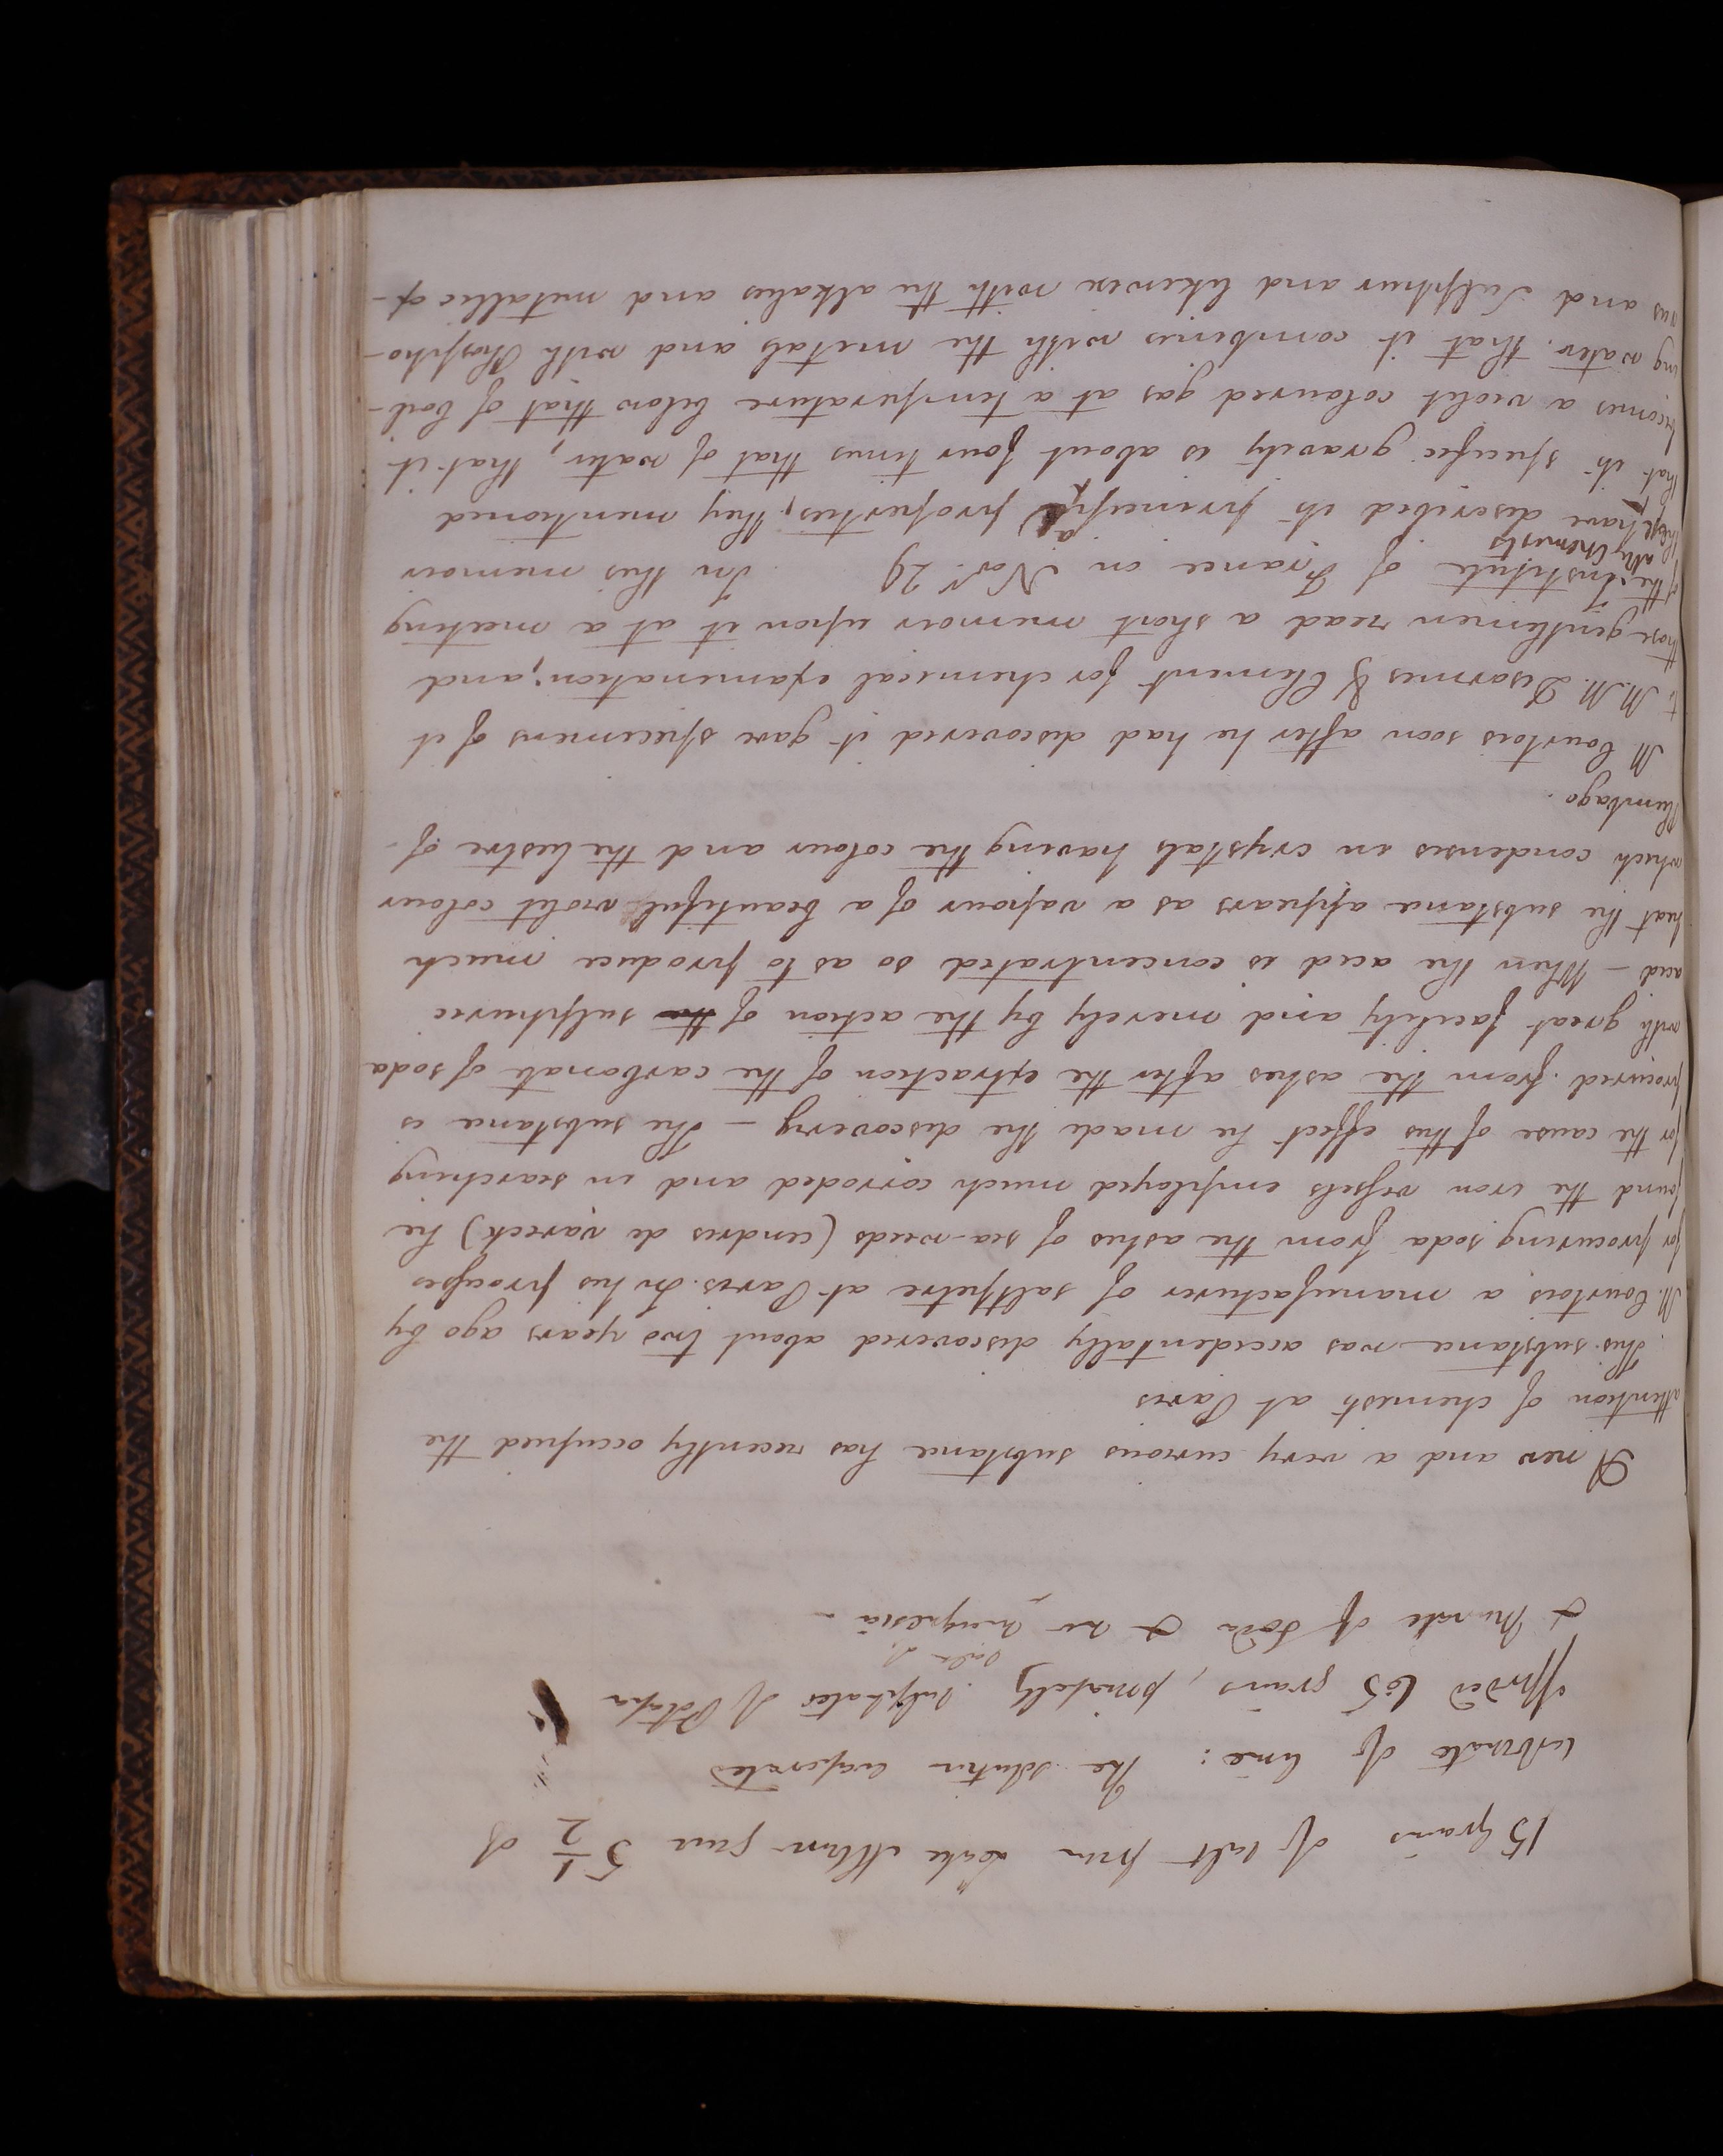 15 Grains of salt from Lake Albano gave 5 1/2 of
carbonate of lime: The solution evaporated
afforded 65 grains, principally
Sulphates of Potassa
& Muriate of Soda & no magnesia -
A new and a very curious substance has recently occupied the
attention of chemists at Paris
This substance was accidentally discovered about two years ago by
M. Courtois a manufacturer of saltpetre at Paris. In his processes
for procuring soda from the ashes of sea-weeds (cendres de vareck) he
found the iron vessels employed much corroded and in searching
for the cause of this effect he made the discovery - The substance is
procured from the ashes after the extraction of the carbonate of soda
with great facility and merely by the action of the sulphuric
acid - When the acid is concentrated so as to produce much
heat the substance appears as a vapour of a beautiful violet colour
which condenses in crystals having the colour and the lustre of
Plumbago.
M Courtois soon after he had discovered it gave specimens of it
to M.M. Desormes & Clement for chemical examination, and
those gentlemen read a short memoir upon it at a meeting
of the Institute of France on Novr. 29 . In this memoir
these able chemists have described its principal properties, they mentioned
that its specific gravity is about four times that of water, that it
becomes a violet coloured gas at a temperature below that of boil-
ing water. that it combines with the metals and with Phospho-
rus and Sulphur and likewise with the alkalies and metallic ox-